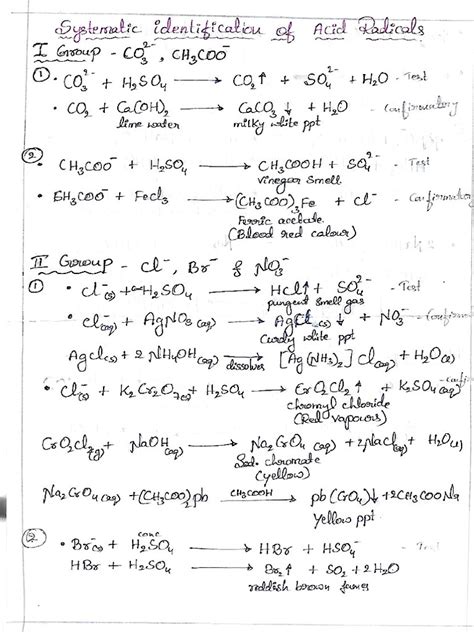 Systematic identification of Acid Radicals
I Group - CO₃²⁻, CH₃COO⁻
① • CO₃²⁻ + H₂SO₄ → CO₂↑ + SO₄²⁻ + H₂O - Test
• CO₂ + Ca(OH)₂ → CaCO₃↓ + H₂O - Confirmatory
lime water milky white ppt
② • CH₃COO⁻ + H₂SO₄ → CH₃COOH + SO₄²⁻ - Test
Vinegar smell
• CH₃COO⁻ + FeCl₃ → (CH₃COO)₃Fe + Cl⁻ - Confirmator
Ferric acetate
(Blood red calour)
II Group - Cl⁻, Br⁻ & NO₃⁻
① • Cl⁻(s) + H₂SO₄ → HCl↑ + SO₄²⁻ - Test
pungent smell gas
• Cl⁻(aq) + AgNO₃(aq) → AgCl(s)↓ + NO₃⁻ - Confirm
Curdy white ppt
AgCl(s) + 2 NH₄OH(aq) → dissolves [Ag(NH₃)₂]Cl(aq) + H₂O(l)
• Cl⁻(s) + K₂Cr₂O₇(s) + H₂SO₄ → CrO₂Cl₂↑ + K₂SO₄(aq) - Confi
chromyl chloride
(Red vapours)
CrO₂Cl₂(g) + NaOH(aq) → Na₂CrO₄(aq) + 2NaCl(aq) + H₂O(l)
Sod. chromate
(yellow)
Na₂CrO₄(aq) + (CH₃COO)₂pb CH₃COOH → pb(CrO₄)↓ + 2CH₃COONa
Yellow ppt
② • Br⁻(s) + conc H₂SO₄ → HBr + HSO₄⁻ - Test
HBr + H₂SO₄ → Br₂↑ + SO₂ + 2H₂O
reddish brown fumes